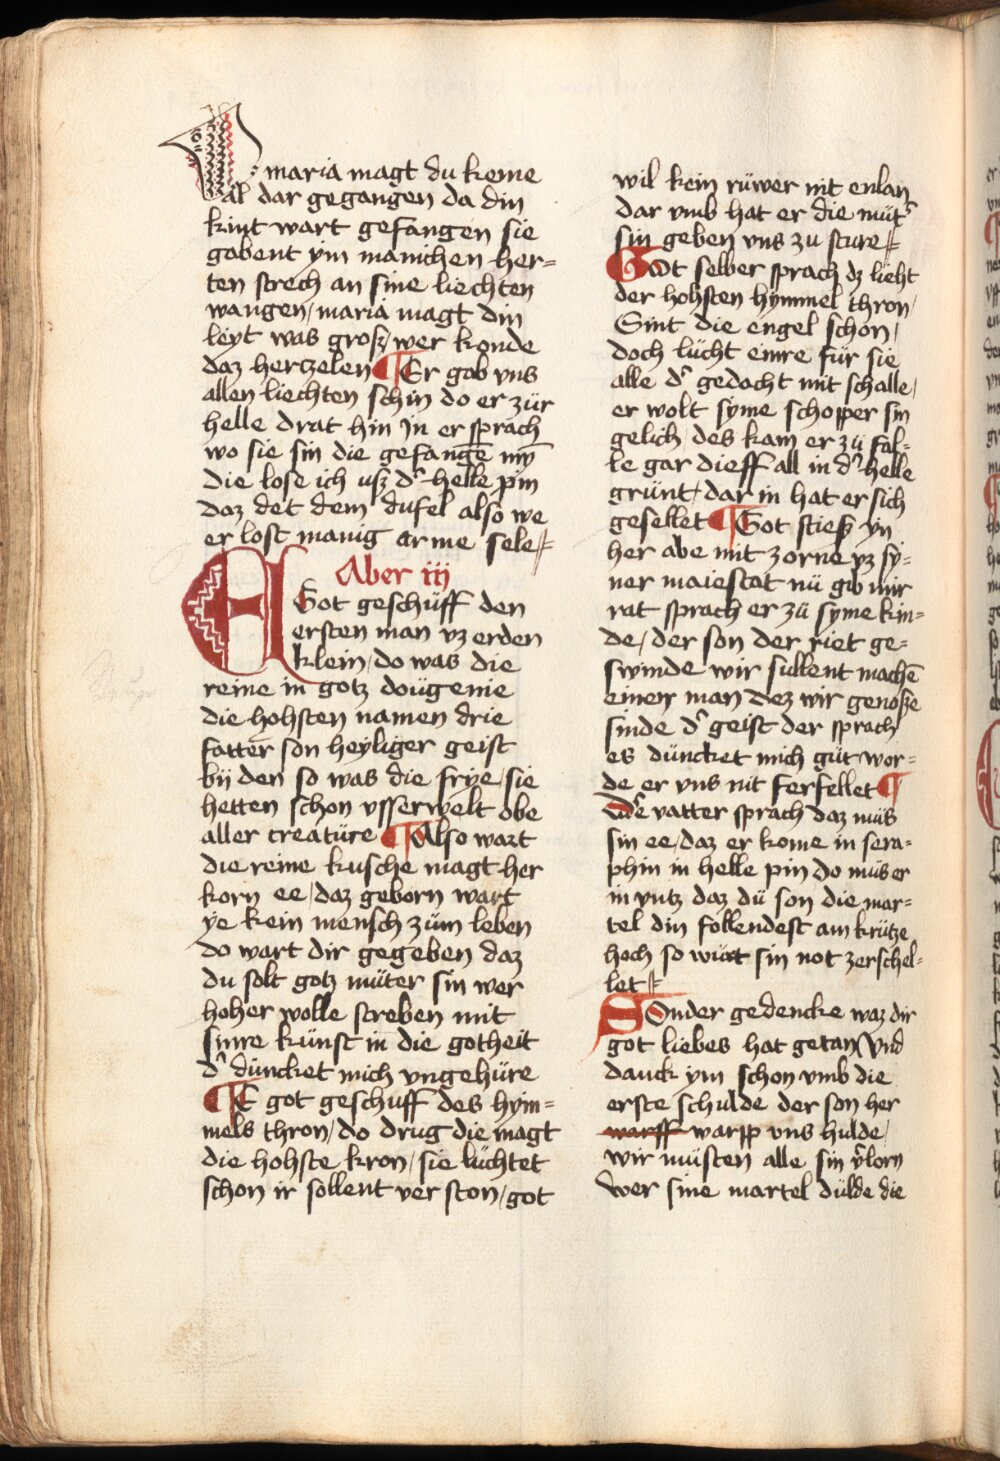 maria magt du keme
al dar gegangen da din
kint wart gefangen sie
gabent ym manichen her=
ten strech an sine liechten
wangen/maria magt din
leyt was groß/wer konde
daz hertzelen ¶ Er gab vns
allen liechten schin do er zür
helle drat hin jn er sprach
wo sie sin die gefangē myn̄
die lose ich uß dˀ helle pin
daz det dem dufel also we
er lost manig arme sele
Aber iij
E Got geschüff den
ersten man vz erden
klein/do was die
reine in gotz dougenie
die hohsten namen drie
fatter son heyliger geist
bij den so was die frye/sie
hetten schon vsserwelt obe
aller creatüre ¶ Also wart
die reine kusche magt her
korn ee/daz geborn wart
ye kein mensch züm leben
do wart dir gegeben daz
du solt gotz müter sin wer
hoher wolle streben mit
sinre künst in die gotheit
dˀ düncket mich vngehüre
¶ E got geschuff des hym=
mels thron/do drug die magt
die hohste kron/sie lüchtet
schon ir sollent ver ston/got
wil kein rüwer nit enlan
dar vmb hat er die mütˀ
sin geben vns zu sture
Got selber sprach dz lieht
der hohsten hymmel thron/
Sint die engel schon/
doch lücht einre für sie
alle dˀ gedocht mit schalle/
er wolt syme schopper sin
gelich des kam er zü fal=
le gar dieff all in dˀ helle
grünt/dar in hat er sich
gesellet ¶ Got stieß yn
her abe mit zorne vz sy=
ner maiestat nü gib mir
rat sprach er zü syme kin=
de/der son der riet ge=
swinde wir sullent machē
einen man dez wir genoße
sinde dˀ geist der sprach
es düncket mich güt wor=
de er vns nit ferfellet ¶
Der vatter sprach daz müs
sin ee/daz er kome in sera=
phin in helle pin do müs er
in yntz daz dü son die mar=
tel din follendest am krütze
hoch so würt sin not zerschel=
let
Sonder gedencke waz dir
got liebes hat getan Vnd
danck ym schon vmb die
erste schulde der son her
warff warpp vns hulde/
wir müsten alle sin vˀlorn
wer sine martel dülde die